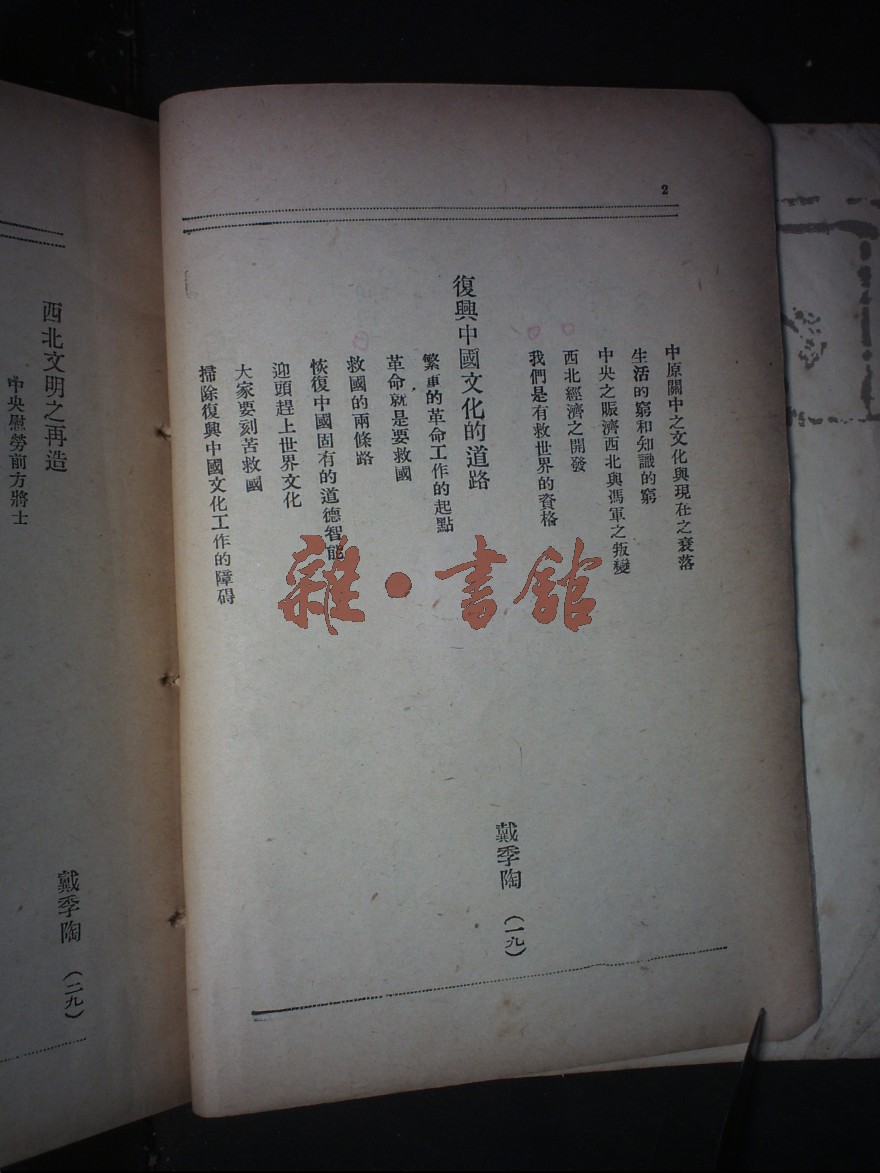 2
中原關中之文化與現在之衰落
生活的窮和知識的窮
中央之賑濟西北與馮軍之叛變
西北經濟之開發
我們是有救世界的資格
復興中國文化的道路 戴季陶 (一九)
繁重的革命工作的起點
革命就是要救國
救國的兩條路
恢復中國固有的道德智能
迎頭趕上世界文化
大家要刻苦救國
掃除復興中國文化工作的障碍
西北文明之再造 戴季陶 (二九)
中央慰勞前方將士
雜·書館